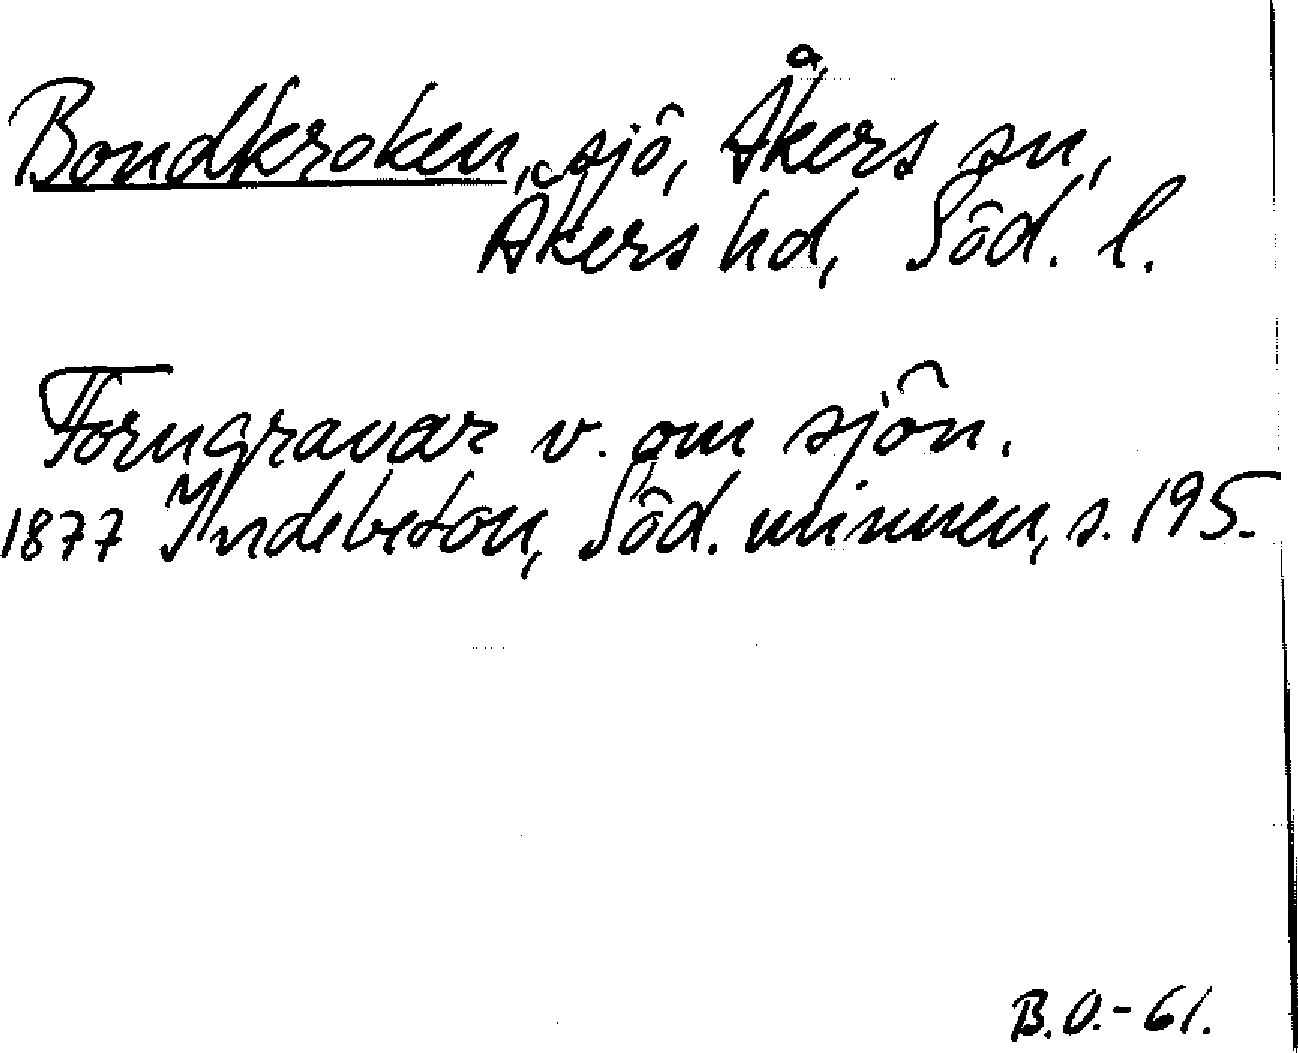 Bondkroken, sjö, Åkers sn,
Åkers hd, Söd. l.
Forngravar v. om sjön.
1877 Indebetou, Söd. minnen, s. 195.
B.O.-61.